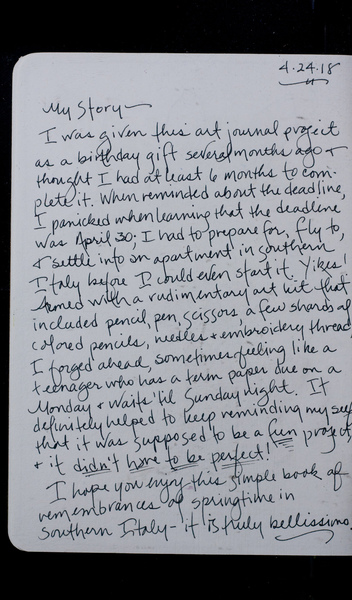 4.24.18
My Story—
I was given this art journal project
as a birthday gift several months ago &
thought I had at least 6 months to com-
plete it. When reminded about the deadline,
I panicked when learning that the deadline
was April 30; I had to prepare for, fly to,
& settle into an apartment in southern
Italy before I could even start it. Yikes!
Armed with a rudimentary art kit that
included pencil, pen, scissors, a few shards of
colored pencils, needles & embroidery thread,
I forged ahead, sometimes feeling like a
teenager who has a term paper due on a
Monday & waits 'til Sunday night. It
definitely helped to keep reminding my self
that it was supposed to be a fun project
& it didn't have to be perfect!
I hope you enjoy this simple book of
remembrances of springtime in
southern Italy - it is truly bellissimo.